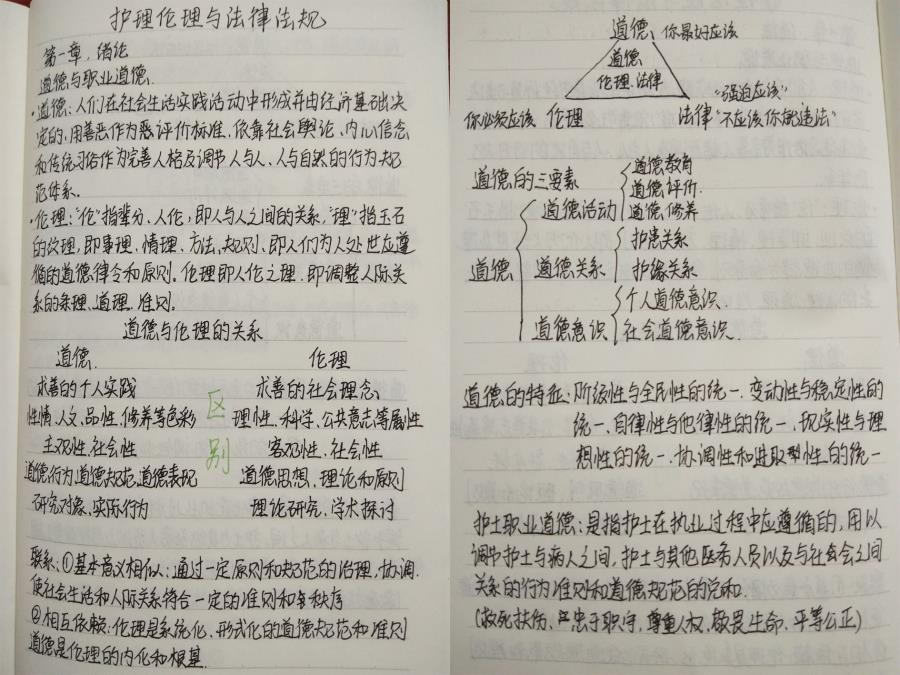 护理伦理与法律法规
第一章,绪论
道德与职业道德.
·道德:人们在社会生活实践活动中形成并由经济基础决
定的,用善恶作为评价标准,依靠社会舆论,内心信念
和传统习俗作为完善人格及调节人与人、人与自然的行为规
范体系。
·伦理:“伦”指辈分、人伦,即人与人之间的关系.“理”指玉石
的纹理,即事理、情理、方法、规则、即人们为人处世应遵
循的道德律令和原则。伦理即人伦之理.即调整人际关
系的条理、道理、准则。
道德与伦理的关系
道德. 伦理
求善的个人实践 求善的社会理念、
性情、人文、品性、修养等色彩 区 理性、科学、公共意志等属性
主观性、社会性 别 客观性、社会性
道德行为、道德规范、道德表现 道德思想、理论和原则
研究对象、实际行为 理论研究、学术探讨
联系:①基本意义相似:通过一定原则和规范的治理,协调.
使社会生活和人际关系符合一定的准则和秩序
②相互依赖:伦理是系统化、形式化的道德规范和准则
道德是伦理的内化和根基.
道德、你最好应该
道德
伦理、法律
“强迫应该”
你必须应该 伦理 法律“不应该你都违法”
道德的三要素
道德教育
道德活动 道德评价.
道德修养
护患关系
道德 道德关系
护缘关系
个人道德意识.
道德意识 社会道德意识.
道德的特征:阶级性与全民性的统一.变动性与稳定性的
统一.自律性与他律性的统一.现实性与理
想性的统一.协调性和进取型性的统一
护士职业道德:是指护士在执业过程中应遵循的,用以
调节护士与病人之间,护士与其他医务人员以及与社会之间
关系的行为准则和道德规范的总和.
(救死扶伤、忠于职守,尊重人权、敬畏生命、平等公正)